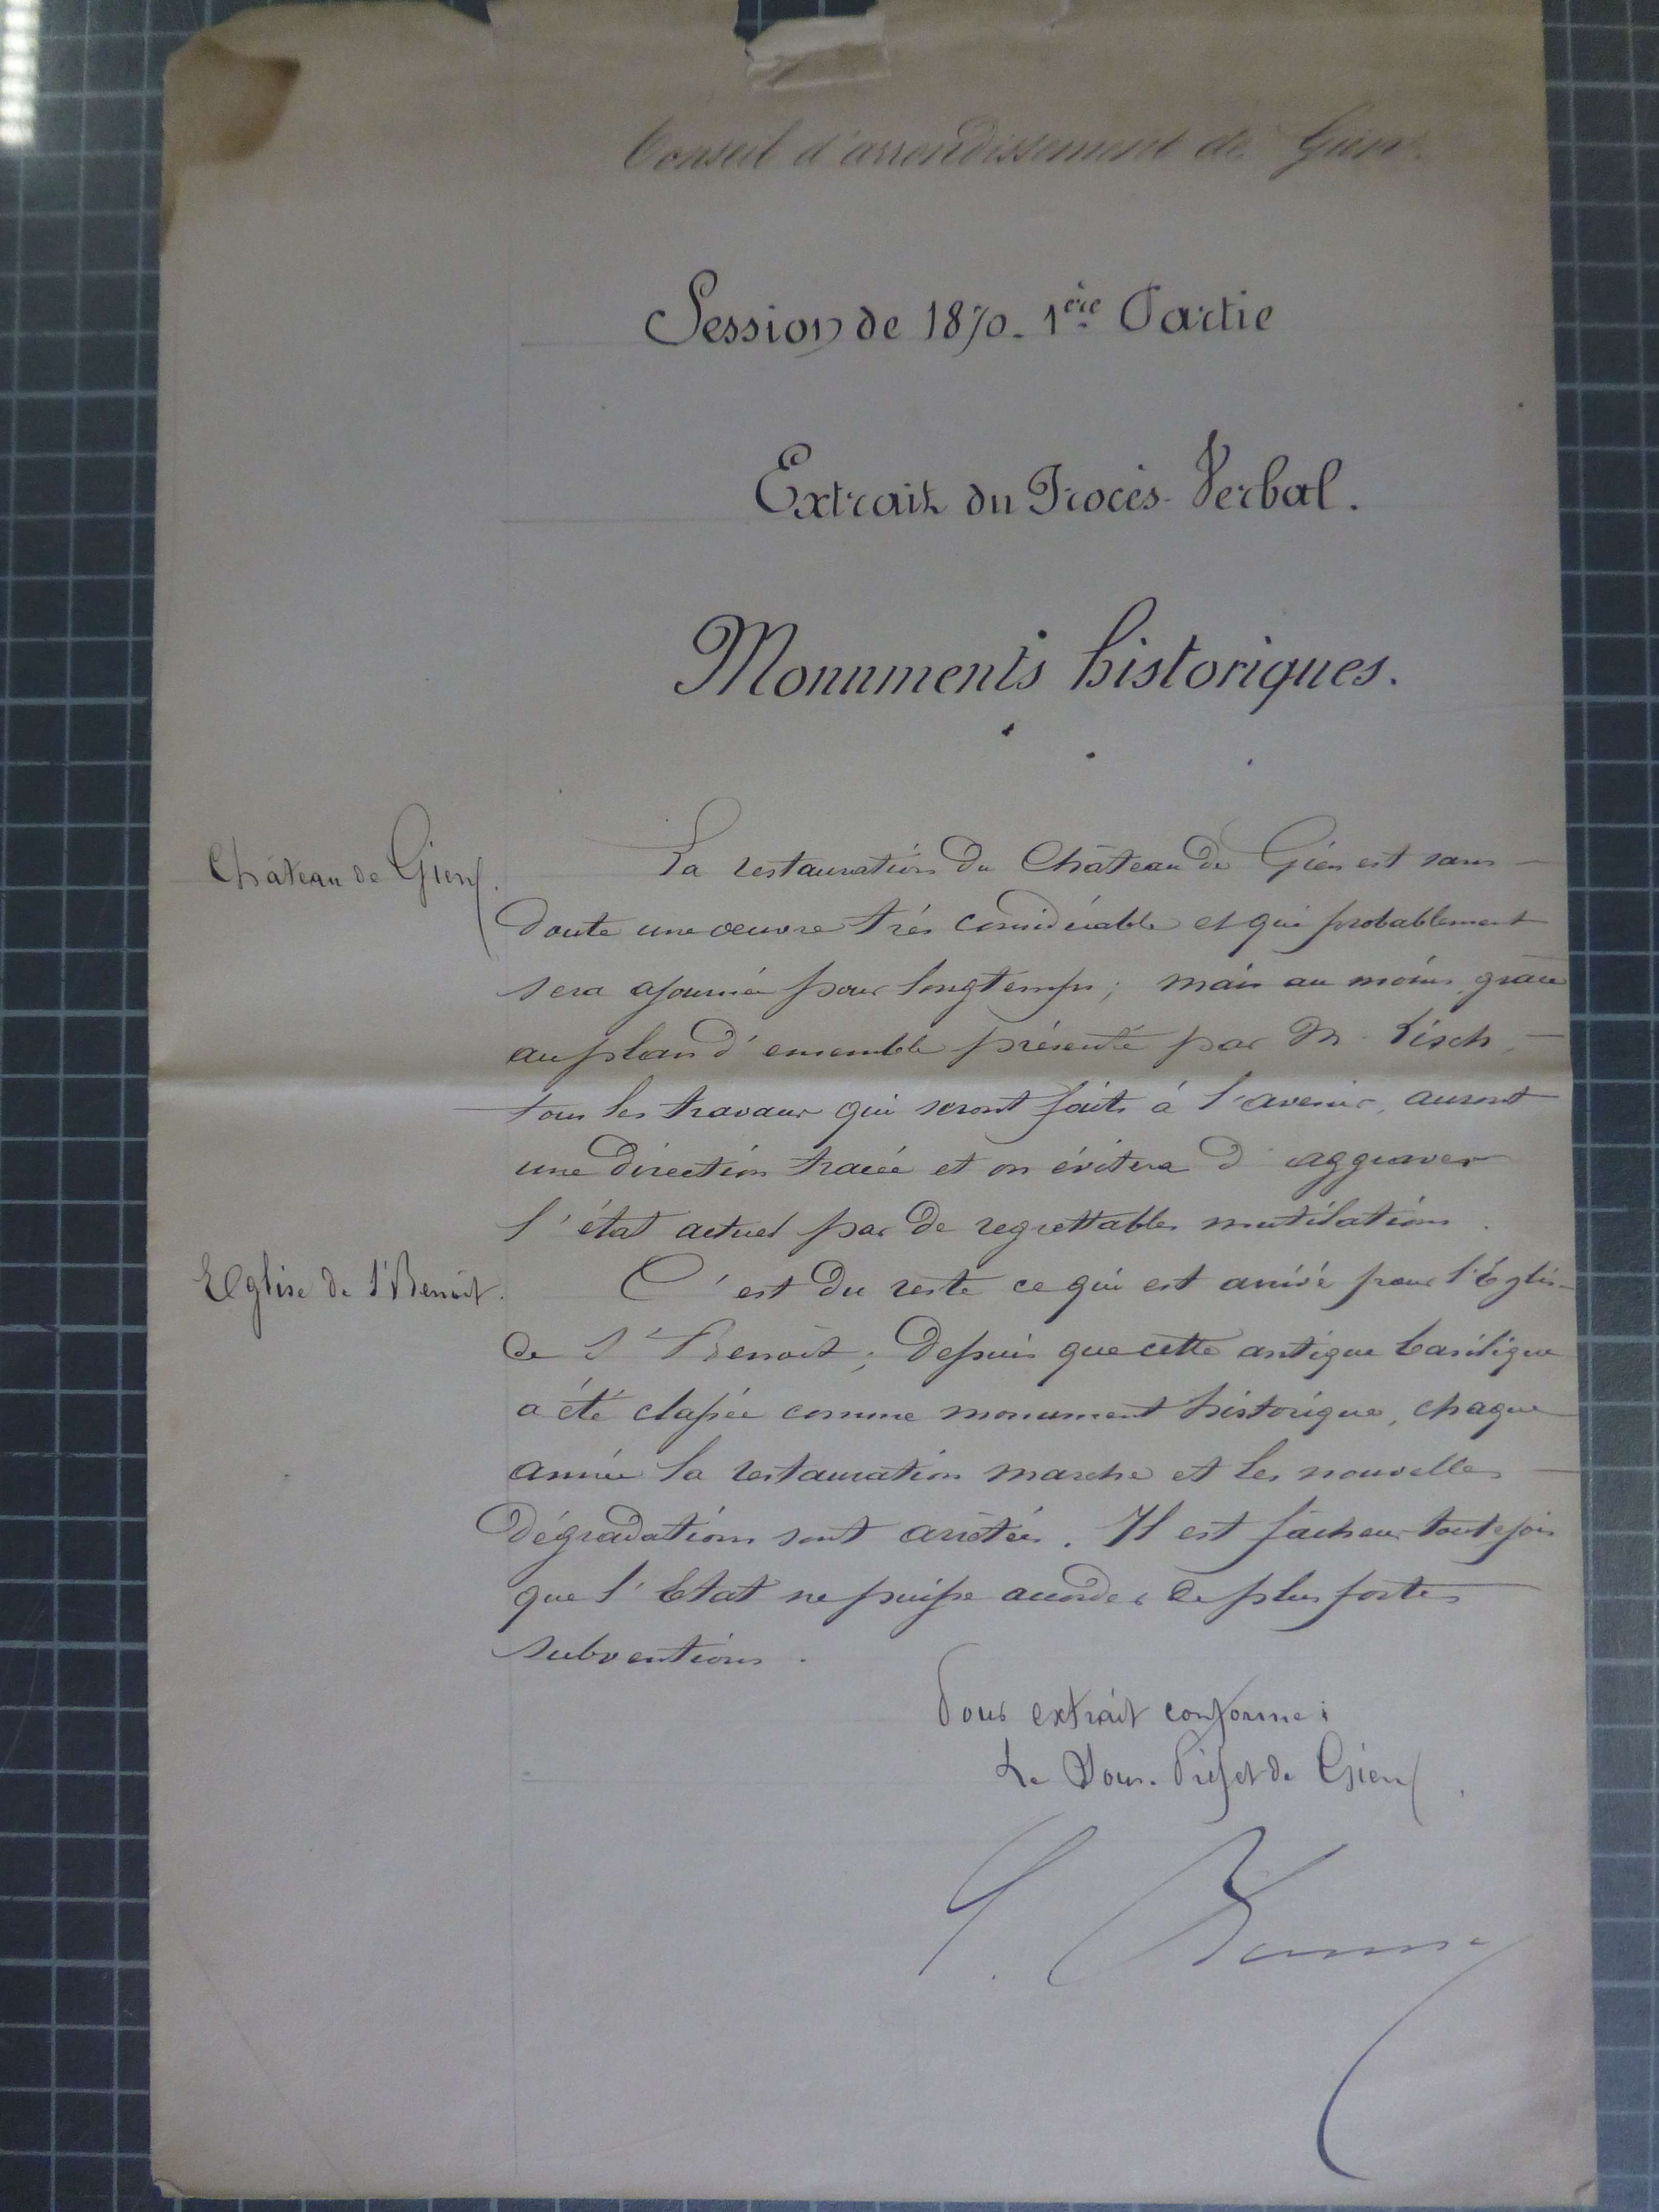 Conseil d'arrondissement de Gien.
Session de 1870. 1ère Partie
Extrait du Procès-Verbal.
Monuments historiques.
Château de Gien.
La restauration du Château de Gien est sans
doute une œuvre très considérable et qui probablement
sera ajournée pour longtemps; mais au moins, grâce
au plan d'ensemble présenté par M. Lisch,
tous les travaux qui seront faits à l'avenir, auront
une direction tracée et on évitera d'aggraver
l'état actuel par de regrettables mutilations.
Eglise de St Benoit.
C'est du reste ce qui est arrivé pour l'Eglise
de St Benoit; depuis que cette antique basilique
a été classée comme monument historique, chaque
année la restauration marche et les nouvelles
dégradations sont arrêtées. Il est fâcheux toutefois
que l'Etat ne puisse accorder de plus fortes
subventions.
Pour extrait conforme:
Le Sous-Préfet de Gien